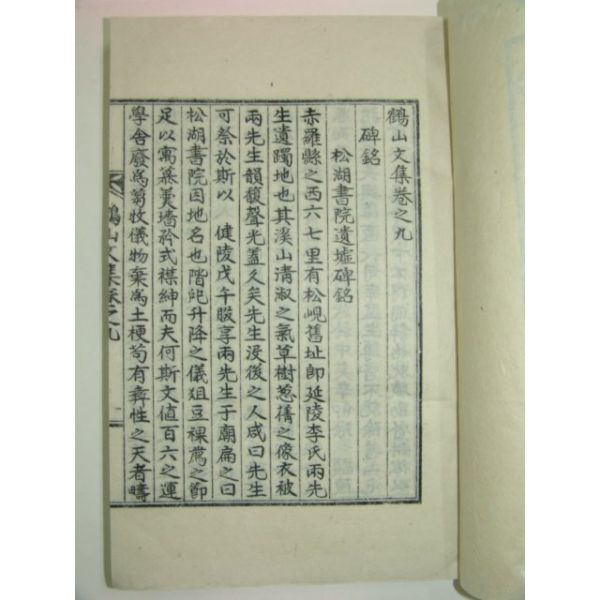 鶴山文集卷之九
碑銘
松湖書院遺墟碑銘
赤羅縣之西六七里有松峴舊址卽延陵李氏兩先
生遺躅地也其溪山淸淑之氣草樹蔥蒨之像衣被
兩先生韻馥聲光蓋久矣先生没後之人咸曰先生
可祭於斯以 健陵戊午腏享兩先生于廟扁之曰
松湖書院因地名也階戺升降之儀俎豆祼薦之節
足以寓羹墻矜式襟紳而夫何斯文値百六之運
學舍廢爲蒭牧儀物棄爲土梗苟有彝性之天者疇
鶴山文集卷之九
一